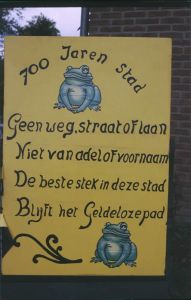 700 Jaren Stad
Geen weg, straat of laan
Niet van adel of voornaam
De beste stek in deze stad
Blijft het Geldelozepad